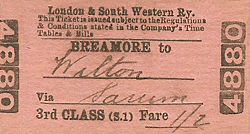 London & South Western Ry.
This Ticket is issued subject to the Regulations
& Conditions stated in the Company's Time
Tables & Bills
BREAMORE to
Wilton
Via Sarum
3rd CLASS (S.1) Fare 1/2
4880
4880